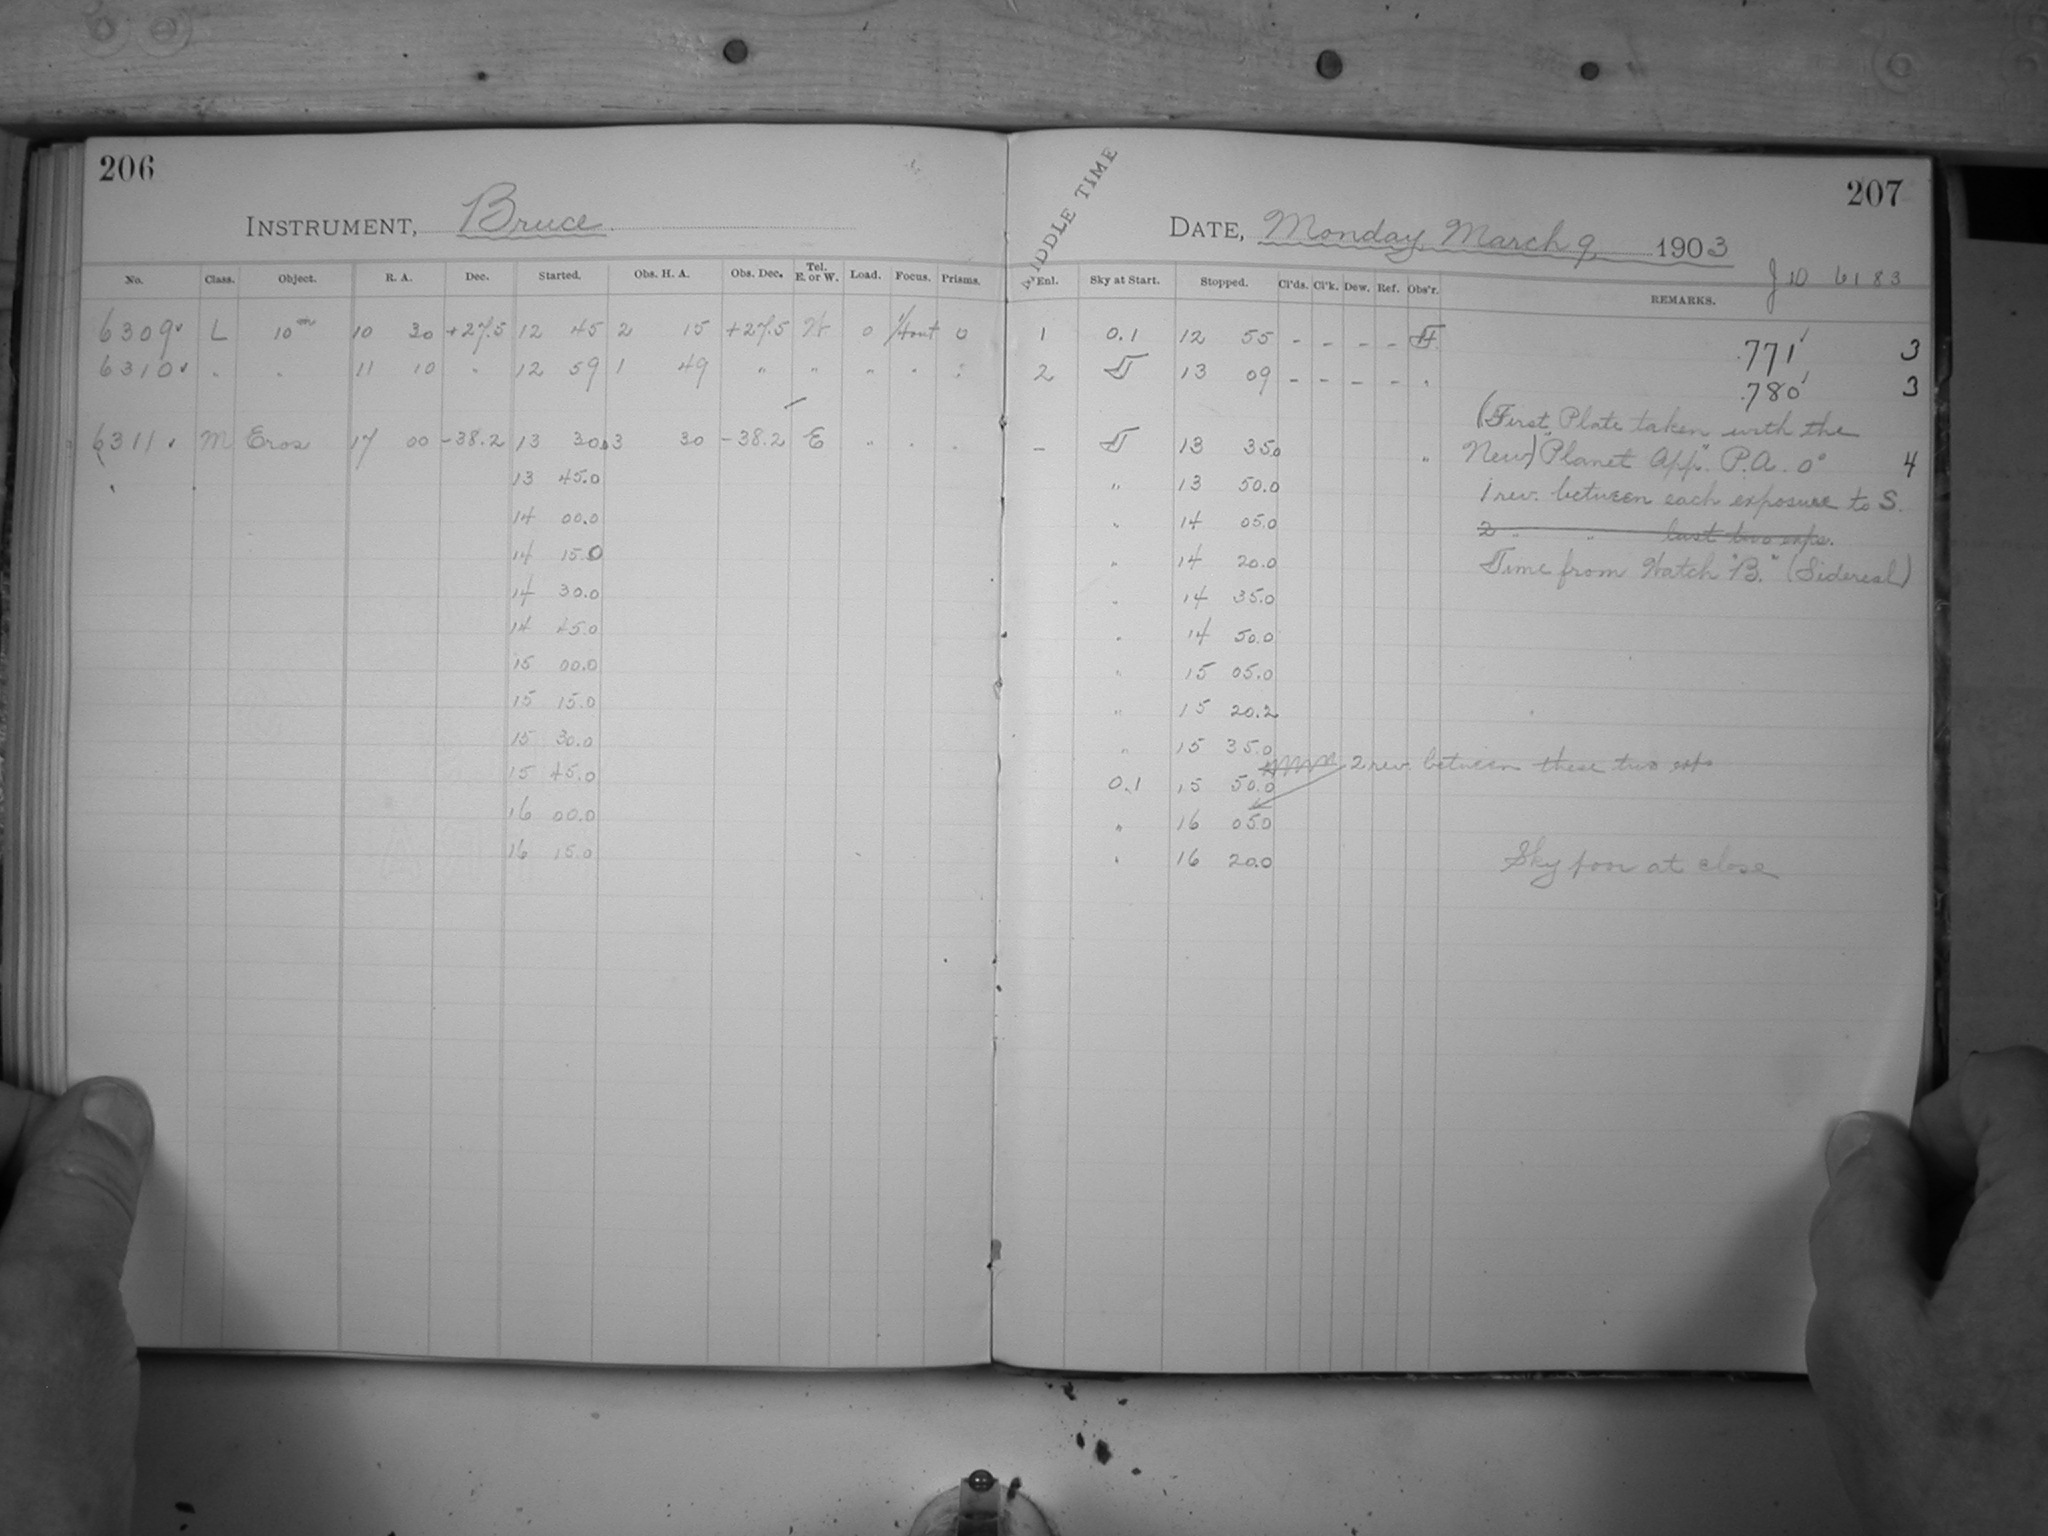 206
INSTRUMENT, Bruce
No. Class. Object. R. A. Dec. Started. Obs. H. A. Obs. Dec. Tel. E. or W. Load. Focus. Prisms.
6309 L 10m 10 30 +27.5 12 45 2 15 +27.5 W 0 0
6310 " " 11 10 " 12 59 1 49 " " " " "
6311 M Eros 17 00 -38.2 13 30.0 3 30 -38.2 E " " "
13 45.0
14 00.0
14 15.0
14 30.0
14 45.0
15 00.0
15 15.0
15 30.0
15 45.0
16 00.0
16 15.0
MIDDLE TIME
207
DATE, Monday, March 9, 1903
J 10 6183
Enl. Sky at Start. Stopped. Cl'ds. Cl'k. Dew. Ref. Obs'r. REMARKS.
1 0.1 12 55 - - - - .771 3
2 13 09 - - - - " .780 3
(First Plate taken with the
- 13 35.0 " New) "Planet App". P.A. 0° 4
" 13 50.0 1 rev. between each exposure to S.
" 14 05.0 2 " " last two exps.
" 14 20.0 Time from Watch "B." (Sidereal)
" 14 35.0
" 14 50.0
" 15 05.0
" 15 20.2
" 15 35.0
2 rev. between these two exps
0.1 15 50.0
" 16 05.0
" 16 20.0 Sky poor at close